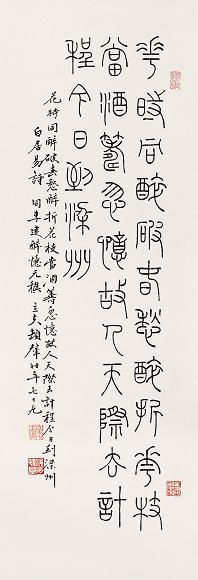 華時同醉破春愁醉折華枝
當酒籌忽憶故人天際去計
程今日到梁州
花時同醉破春愁醉折花枝當酒籌忽憶故人天際去計程今日到梁州
白居易詩 同李建醉憶元稹 立夫 年七十九